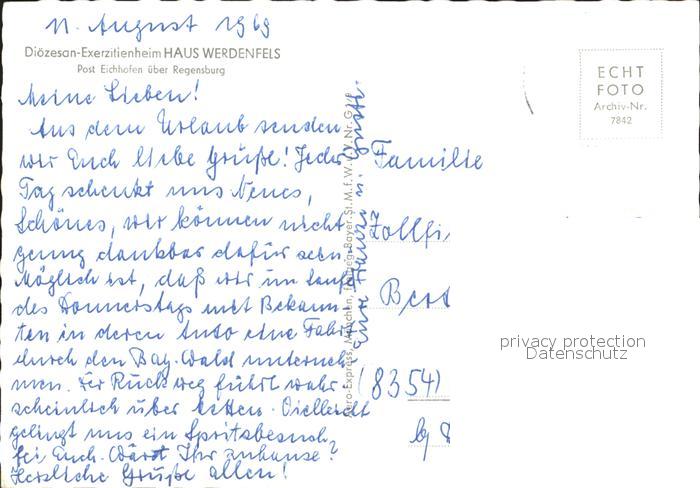 11. August 1969
Diözesan-Exerzitienheim HAUS WERDENFELS
Post Eichhofen über Regensburg
Meine Lieben!
Aus dem Urlaub senden
wir Euch liebe Grüße! Jeder
Tag schenkt uns Neues,
Schönes, wir können nicht
genug dankbar dafür sein.
Möglich ist, daß wir im Laufe
des Donnerstags mit Bekann-
ten in deren Auto eine Fahrt
durch den Bay. Wald unterneh-
men. Der Rückweg führt wahr-
scheinlich über Vielleicht
gelingt uns ein Spritzbesuch
bei Euch. Wärt Ihr zuhause?
Herzliche Grüße allen!
Eure u.
Aero-Express, München, Freig. Bayer. St. M. f. W. u. V. Nr. G
ECHT
FOTO
Archiv-Nr.
7842
Familie
Zollfi
(8354)
privacy protection
Datenschutz